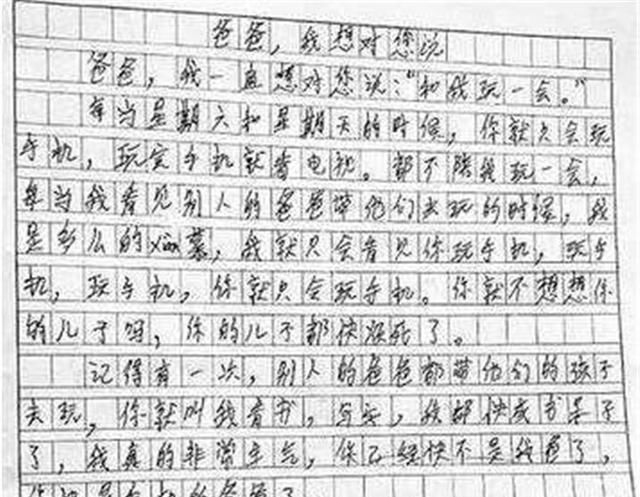 爸爸，我想对您说
爸爸，我一直想对您说：“和我玩一会。”
每当星期六和星期天的时候，你就只会玩
手机，玩完手机就看电视。都不陪我玩一会，
每当我看见别人的爸爸带他们去玩的时候，我
是多么的xiàn慕，我就只会看见你玩手机，玩手
机，玩手机，你就只会玩手机。你就不想想你
的儿子吗，你的儿子都快烦死了。
记得有一次，别人的爸爸都带他们的孩子
去玩，你就叫我看书，写字，我都快成书呆子
了，我真的非常生气，你已经快不是我爸了，
你就是手机的爸爸了